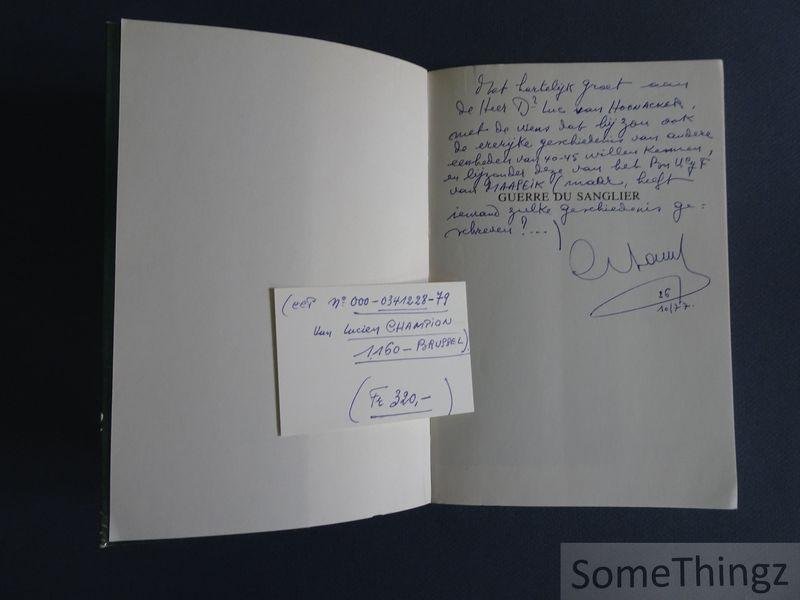 Met hartelijk groet aan
de Heer Dr Luc van Hoonacker,
met de wens dat hij zou ook
de ererijke geschiedenis van andere
eenheden van 40-45 willen kennen,
en bijzonder deze van het Bn
van MAASEIK (maar, heeft
GUERRE DU SANGLIER
iemand zulke geschiedenis ge-
schreven?...)
26
10/77.
(CCP N° 000-0341228-79
Van Lucien CHAMPION
1160 - BRUSSEL)
(Fr 320,-)
SomeThingz